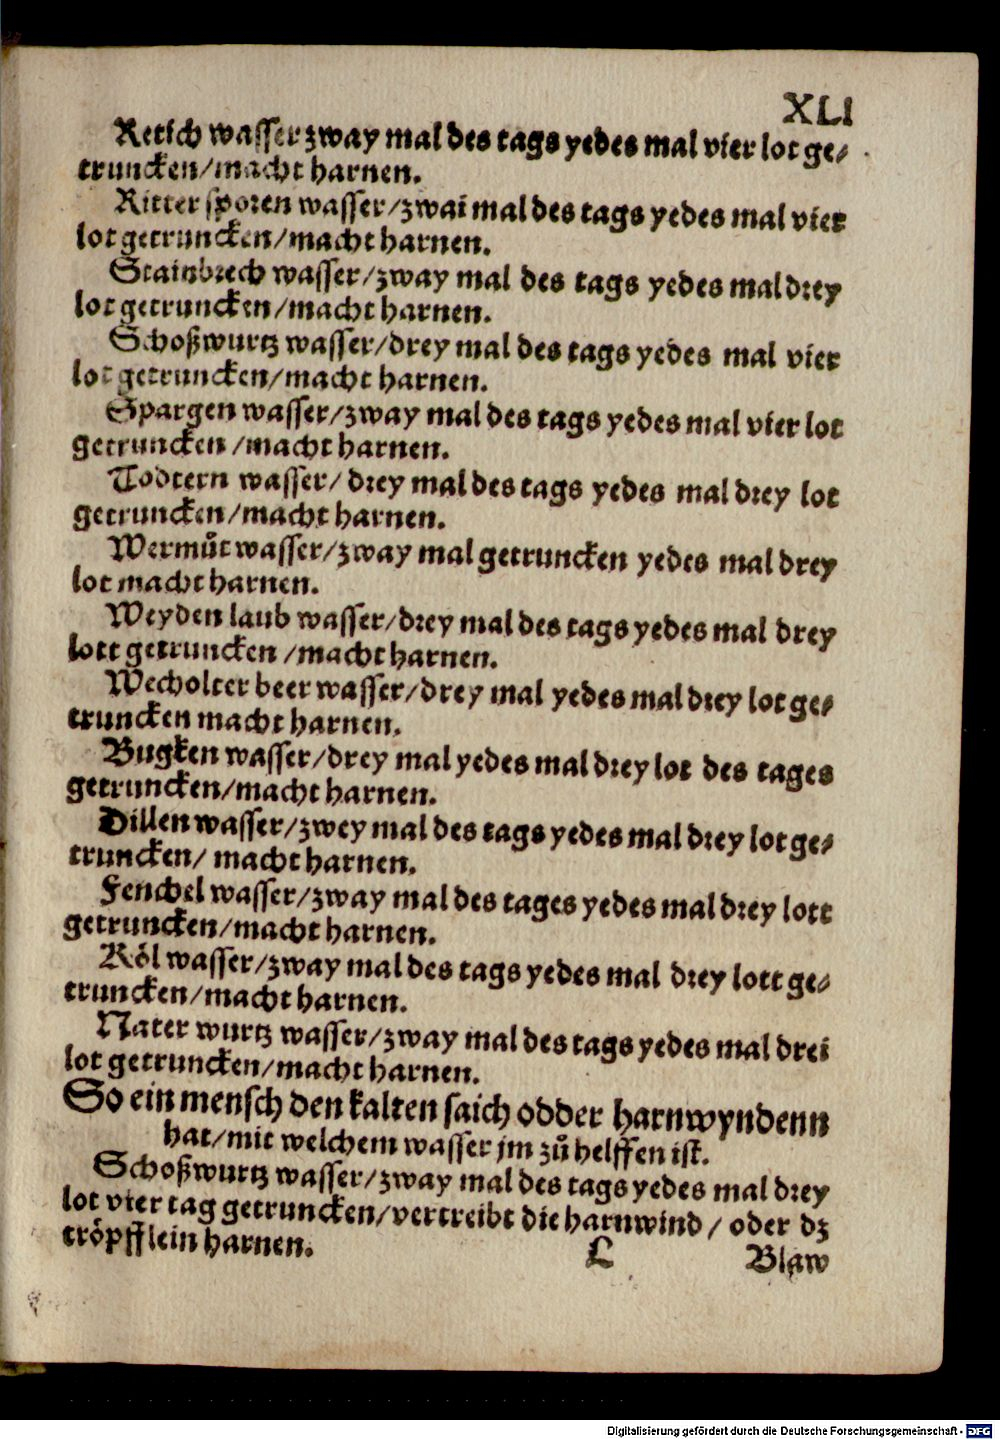 XLI
Retich wasser zway mal des tags yedes mal vier lot ge⸗
truncken/macht harnen.
Ritter sporen wasser/zwai mal des tags yedes mal vier
lot getruncken/macht harnen.
Stainbrech wasser/zway mal des tags yedes mal drey
lot getruncken/macht harnen.
Schoßwurtz wasser/drey mal des tags yedes mal vier
lot getruncken/macht harnen.
Spargen wasser/zway mal des tags yedes mal vier lot
getruncken /macht harnen.
Todtern wasser/ drey mal des tags yedes mal drey lot
getruncken/macht harnen.
Wermůt wasser/zway mal getruncken yedes mal drey
lot macht harnen.
Weyden laub wasser/drey mal des tags yedes mal drey
lott getruncken /macht harnen.
Wecholter beer wasser/drey mal yedes mal drey lot ge⸗
truncken macht harnen.
Bugken wasser/drey mal yedes mal drey lot des tages
getruncken/macht harnen.
Dillen wasser/zwey mal des tags yedes mal drey lot ge⸗
truncken/ macht harnen.
Fenchel wasser/zway mal des tages yedes mal drey lott
getruncken/macht harnen.
Koͤl wasser/zway mal des tags yedes mal drey lott ge⸗
truncken/macht harnen.
Nater wurtz wasser/zway mal des tags yedes mal drei
lot getruncken/macht harnen.
So ein mensch den kalten saich odder harnwyndenn
hat/mit welchem wasser jm zů helffen ist.
Schoßwurtz wasser/zway mal des tags yedes mal drey
lot vier tag getruncken/vertreibt die harnwind / oder dz
troͤpfflein harnen.
L Blaw
Digitalisierung gefördert durch die Deutsche Forschungsgemeinschaft - DFG